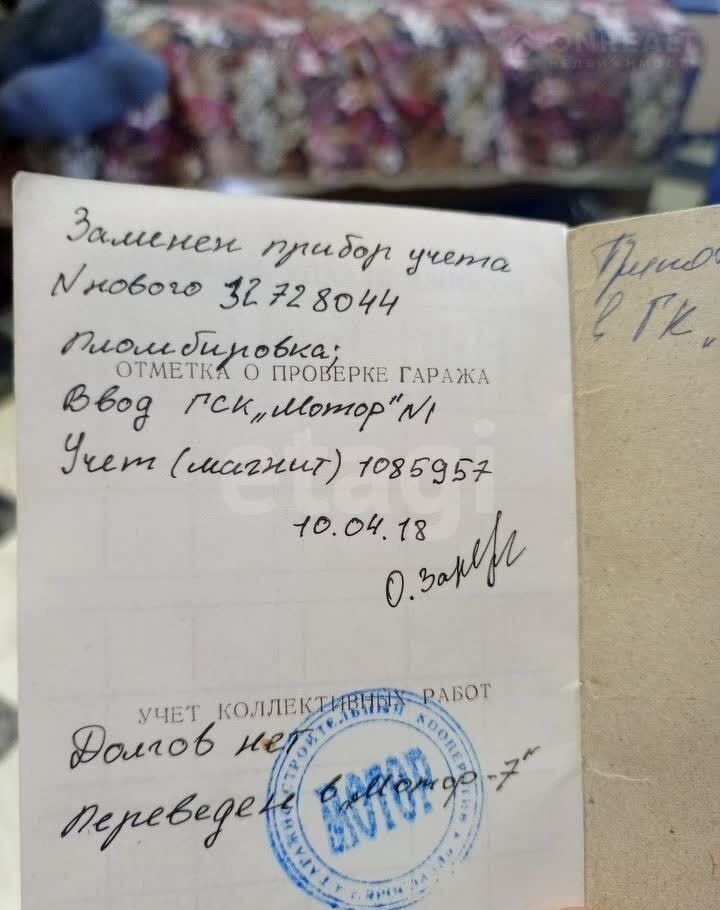 ONREALT
НЕДВИЖИМОСТЬ
Заменен прибор учета
N нового 32728044
Пломбировка;
ОТМЕТКА О ПРОВЕРКЕ ГАРАЖА
Ввод ГСК „Мотор" N1
Учет (магнит) 1085957
etagi
10.04.18
УЧЕТ КОЛЛЕКТИВНЫХ РАБОТ
Долгов нет
Переведен в „Мотор-7"
МОТОР
в ГК „